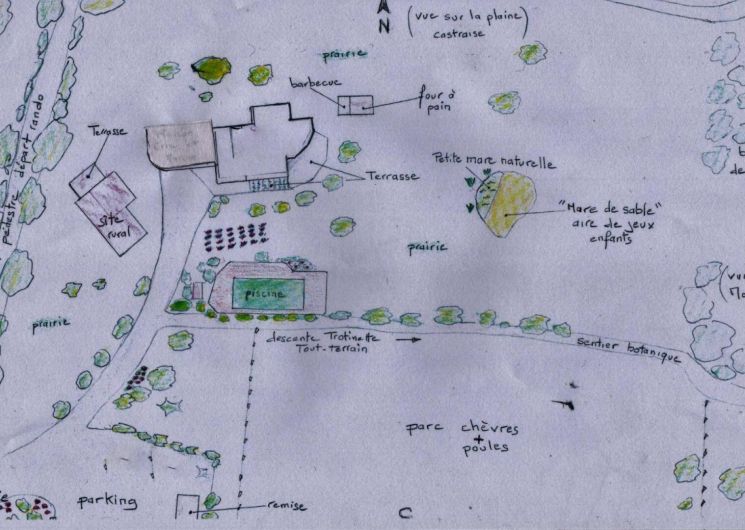 N
(vue sur la plaine
castraise
prairie
barbecue
four à
pain
Terrasse
pédestre départ rando
Terrasse
Petite mare naturelle
"Mare de sable"
aire de jeux
enfants
gîte
rural
prairie
(vu
piscine
prairie
descente Trotinette
Tout-terrain
sentier botanique
parc chèvres
+
poules
parking
remise
C